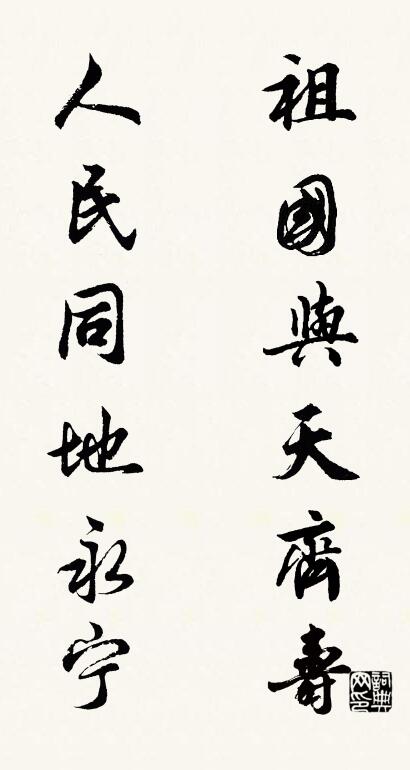 祖國與天齊壽
人民同地永宁
詞典網印